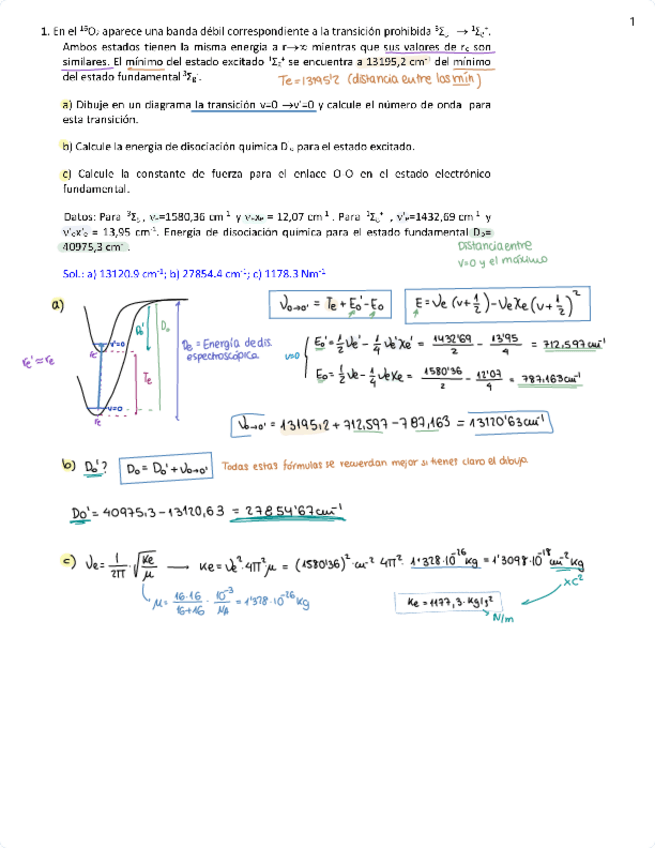 1
1. En el ¹⁶O₂ aparece una banda débil correspondiente a la transición prohibida ³Σg⁻ → ¹Σg⁺.
Ambos estados tienen la misma energía a r→∞ mientras que sus valores de re son
similares. El mínimo del estado excitado ¹Σg⁺ se encuentra a 13195,2 cm⁻¹ del mínimo
del estado fundamental ³Σg⁻.
Te=13195'2 (distancia entre los mín)
a) Dibuje en un diagrama la transición v=0 →v'=0 y calcule el número de onda para
esta transición.
b) Calcule la energía de disociación química D₀ para el estado excitado.
c) Calcule la constante de fuerza para el enlace O-O en el estado electrónico
fundamental.
Datos: Para ³Σg⁻, νe=1580,36 cm⁻¹ y νexe = 12,07 cm⁻¹. Para ¹Σg⁺, ν'e=1432,69 cm⁻¹ y
ν'ex'e = 13,95 cm⁻¹. Energía de disociación química para el estado fundamental D₀=
40975,3 cm⁻¹.
Distancia entre
v=0 y el máximo
Sol.: a) 13120.9 cm⁻¹; b) 27854.4 cm⁻¹; c) 1178.3 Nm⁻¹
a)
re' ≈ re
v'=0
re
v=0
re
D₀'
D₀
Te
De = Energía de dis.
espectroscópica
ν₀→₀' = Te + E₀' - E₀
E = νe (v + 1/2) - νexe (v + 1/2)²
v=0
E₀' = 1/2 νe' - 1/4 νe'xe' = 1432'69/2 - 13'95/4 = 712,597 cm⁻¹
E₀ = 1/2 νe - 1/4 νexe = 1580'36/2 - 12'07/4 = 787,163 cm⁻¹
ν₀→₀' = 13195,2 + 712,597 - 787,163 = 13120'63 cm⁻¹
b) D₀'? D₀ = D₀' + ν₀→₀' Todas estas fórmulas se recuerdan mejor si tienes claro el dibujo
D₀' = 40975,3 - 13120,63 = 27854'67 cm⁻¹
c) νe = 1/2π √(ke/μ) → ke = νe² · 4π² μ = (1580'36)² · cm⁻² 4π² · 1'328·10⁻²⁶ kg = 1'3098·10⁻¹⁸ cm⁻² kg
xc²
μ = 16·16/16+16 · 10⁻³/NA = 1'328·10⁻²⁶ kg
ke = 1177,3 · kg/s²
N/m